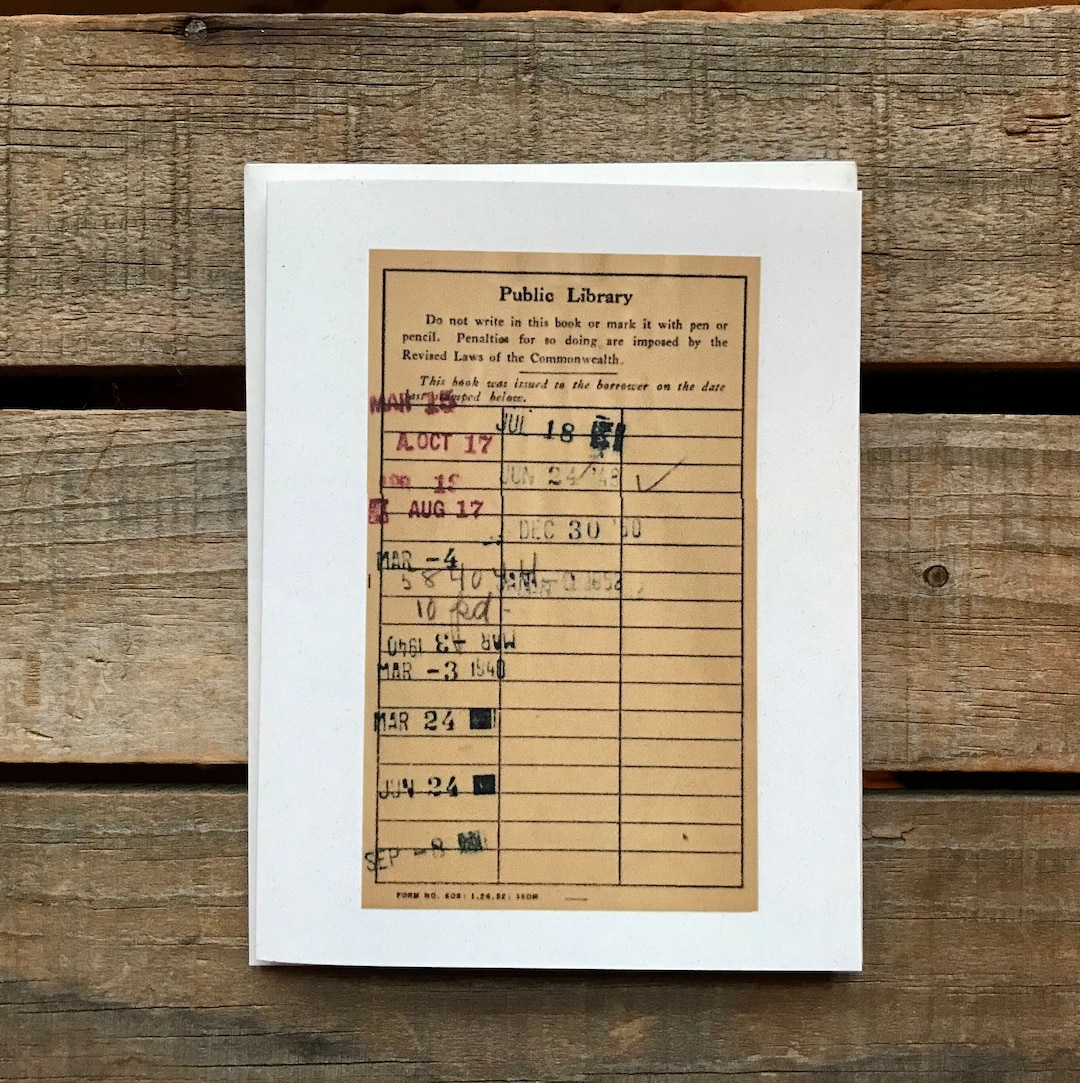 Public Library
Do not write in this book or mark it with pen or
pencil. Penalties for so doing are imposed by the
Revised Laws of the Commonwealth.
This book was issued to the borrower on the date
last stamped below.
MAR 15
A.OCT 17
APR
AUG 17
MAR -4
5 8 40
10 pd-
MAR -3 1940
MAR -3 1940
MAR 24
JUN 24
SEP -8
JUL 18
JUN 24 '48
DEC 30
FORM NO.